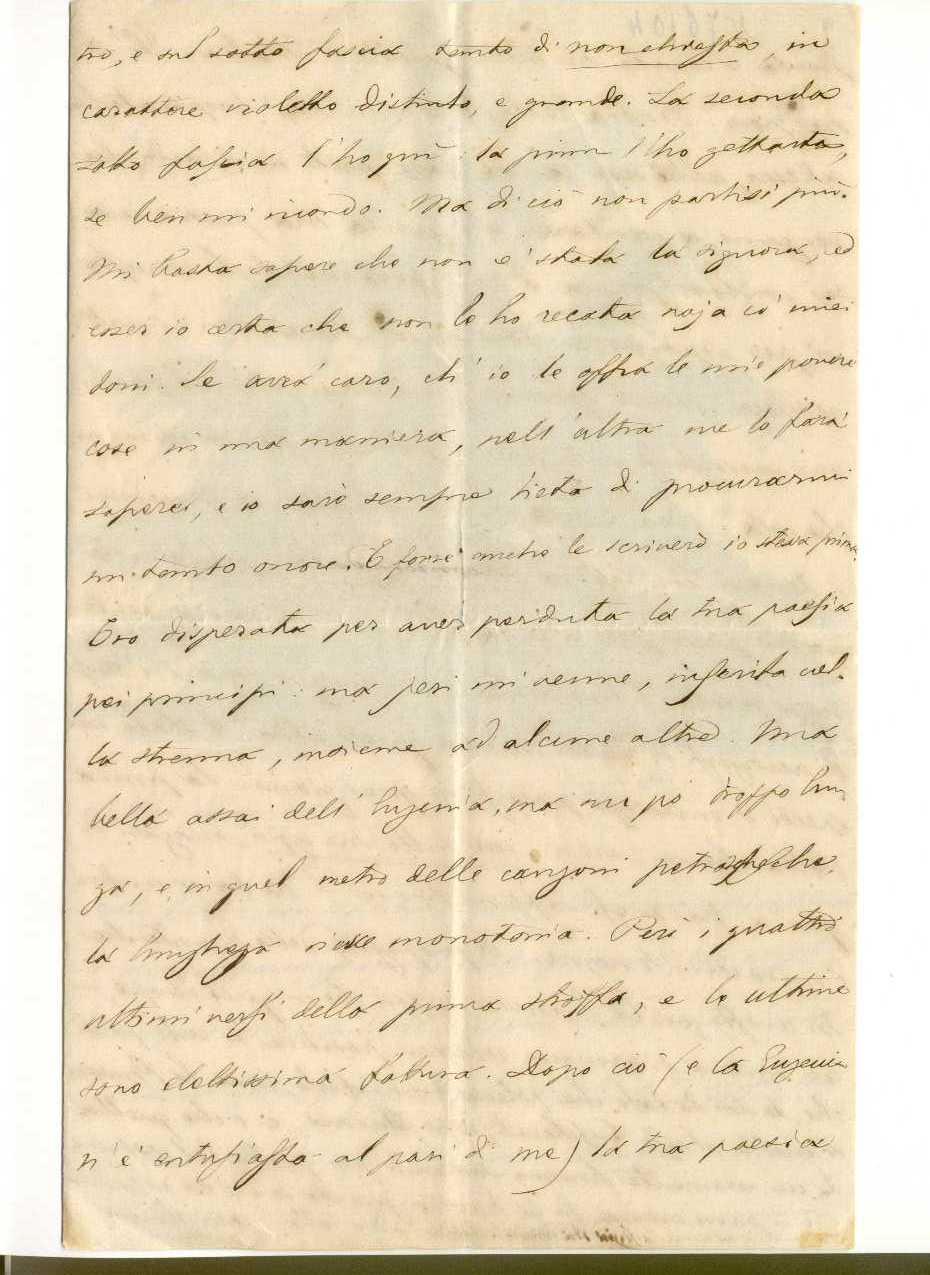 tro, e sul sotto fascia tanto di non chiesta, in
carattere violetto distinto, e grande. La seconda
sotto fascia l'ho qui: la prima l'ho gettata,
se ben mi ricordo. Ma di ciò non parlisi più.
Mi basta sapere che non è stata la signora, ed
esser io certa che non le ho recata noja co' miei
doni. Se avrà caro, ch' io le offra le mie povere
cose in una maniera, nell' altra me lo farà
sapere, e io sarò sempre lieta di procurarmi
un tanto onore. E forse anche le scriverò io stessa prima.
Ero disperata per aver perduta la tua poesia
pei principi: ma jeri mi venne, inserita nel-
la strenna, insieme ad alcune altre. Una
bella assai dell' Eugenia, ma un po' troppo lun
ga, e in quel metro delle canzoni petrarchesche,
la lunghezza riesce monotona. Però i quattro
ultimi versi della prima stroffa, e le ultime
sono elettissima fattura. Dopo ciò (e la Eugenia
n' è entusiasta al pari di me) la tua poesia